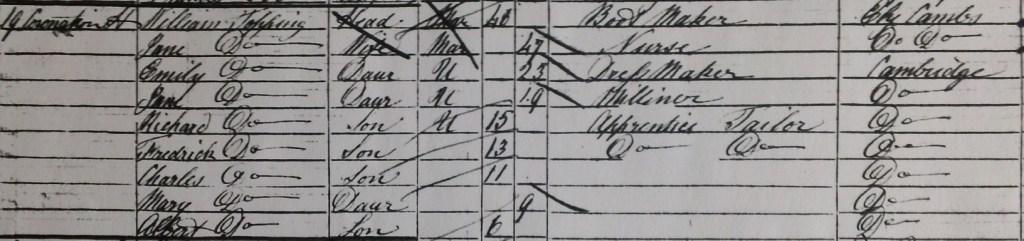 19 Coronation St William Topping Head Mar 48 Boot Maker Ely Cambs
Jane Do Wife Mar 47 Nurse Do Do
Emily Do Daur U 23 Dress Maker Cambridge
Jane Do Daur U 19 Milliner Do
Richard Do Son U 15 Apprentice Tailor Do
Fredrick Do Son 13 Do Do Do
Charles Do Son 11 Do
Mary Do Daur 9 Do
Albert Do Son 6 Do